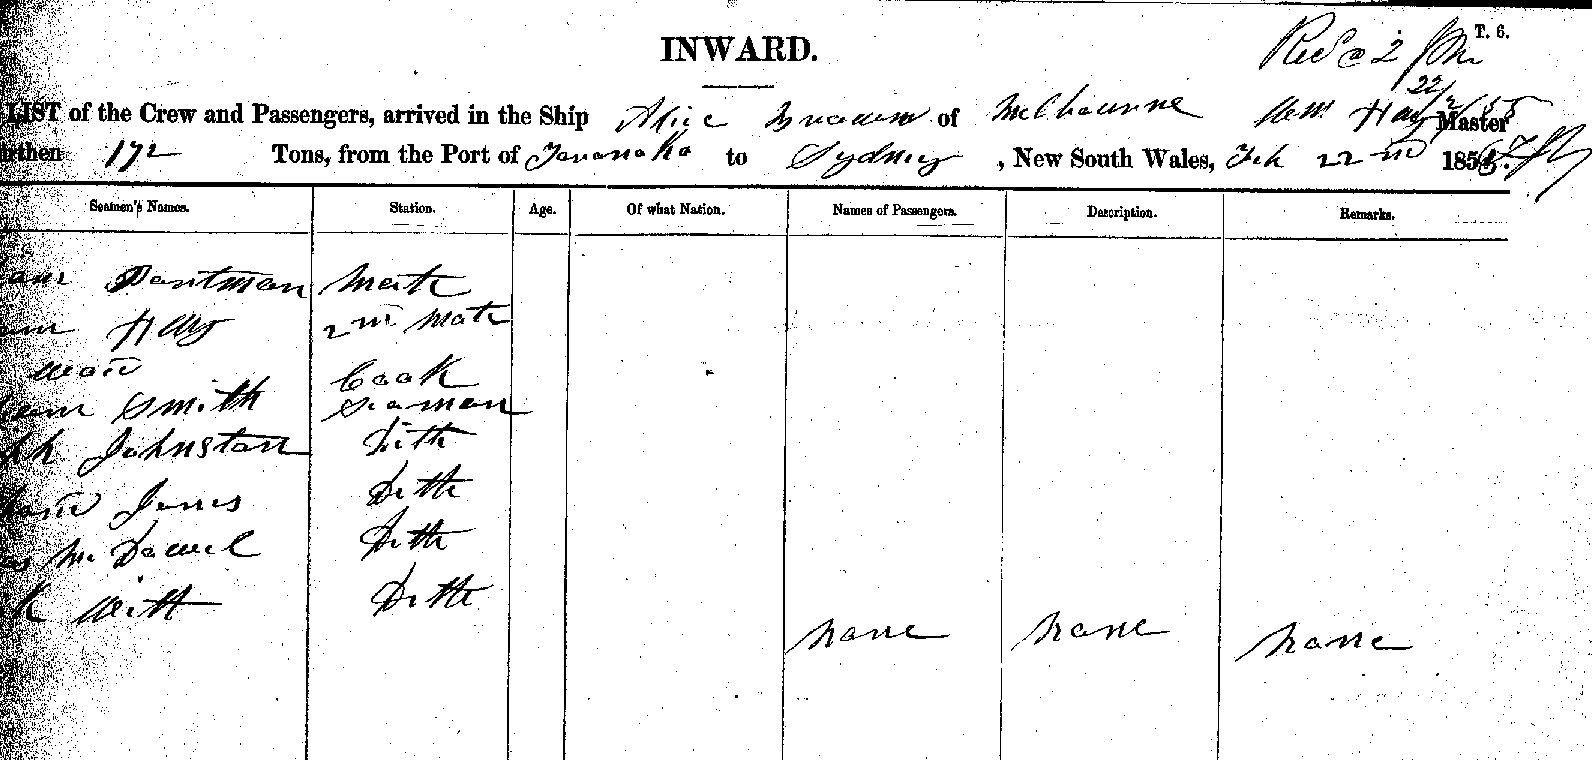 T. 6.
INWARD.
Rec'd @ 2 pm
22/2/55
LIST of the Crew and Passengers, arrived in the Ship Alice Brown of Melbourne Wm Hay Master
172 Tons, from the Port of Taranaka to Sydney, New South Wales, Feb 22nd 1855
Seamen's Names. Station. Age. Of what Nation. Names of Passengers. Description. Remarks.
Mate
Hay 2nd Mate
Cook
Smith Seaman
Johnstan Ditto
Jones Ditto
Mc Dowel Ditto
Witt Ditto
none none none